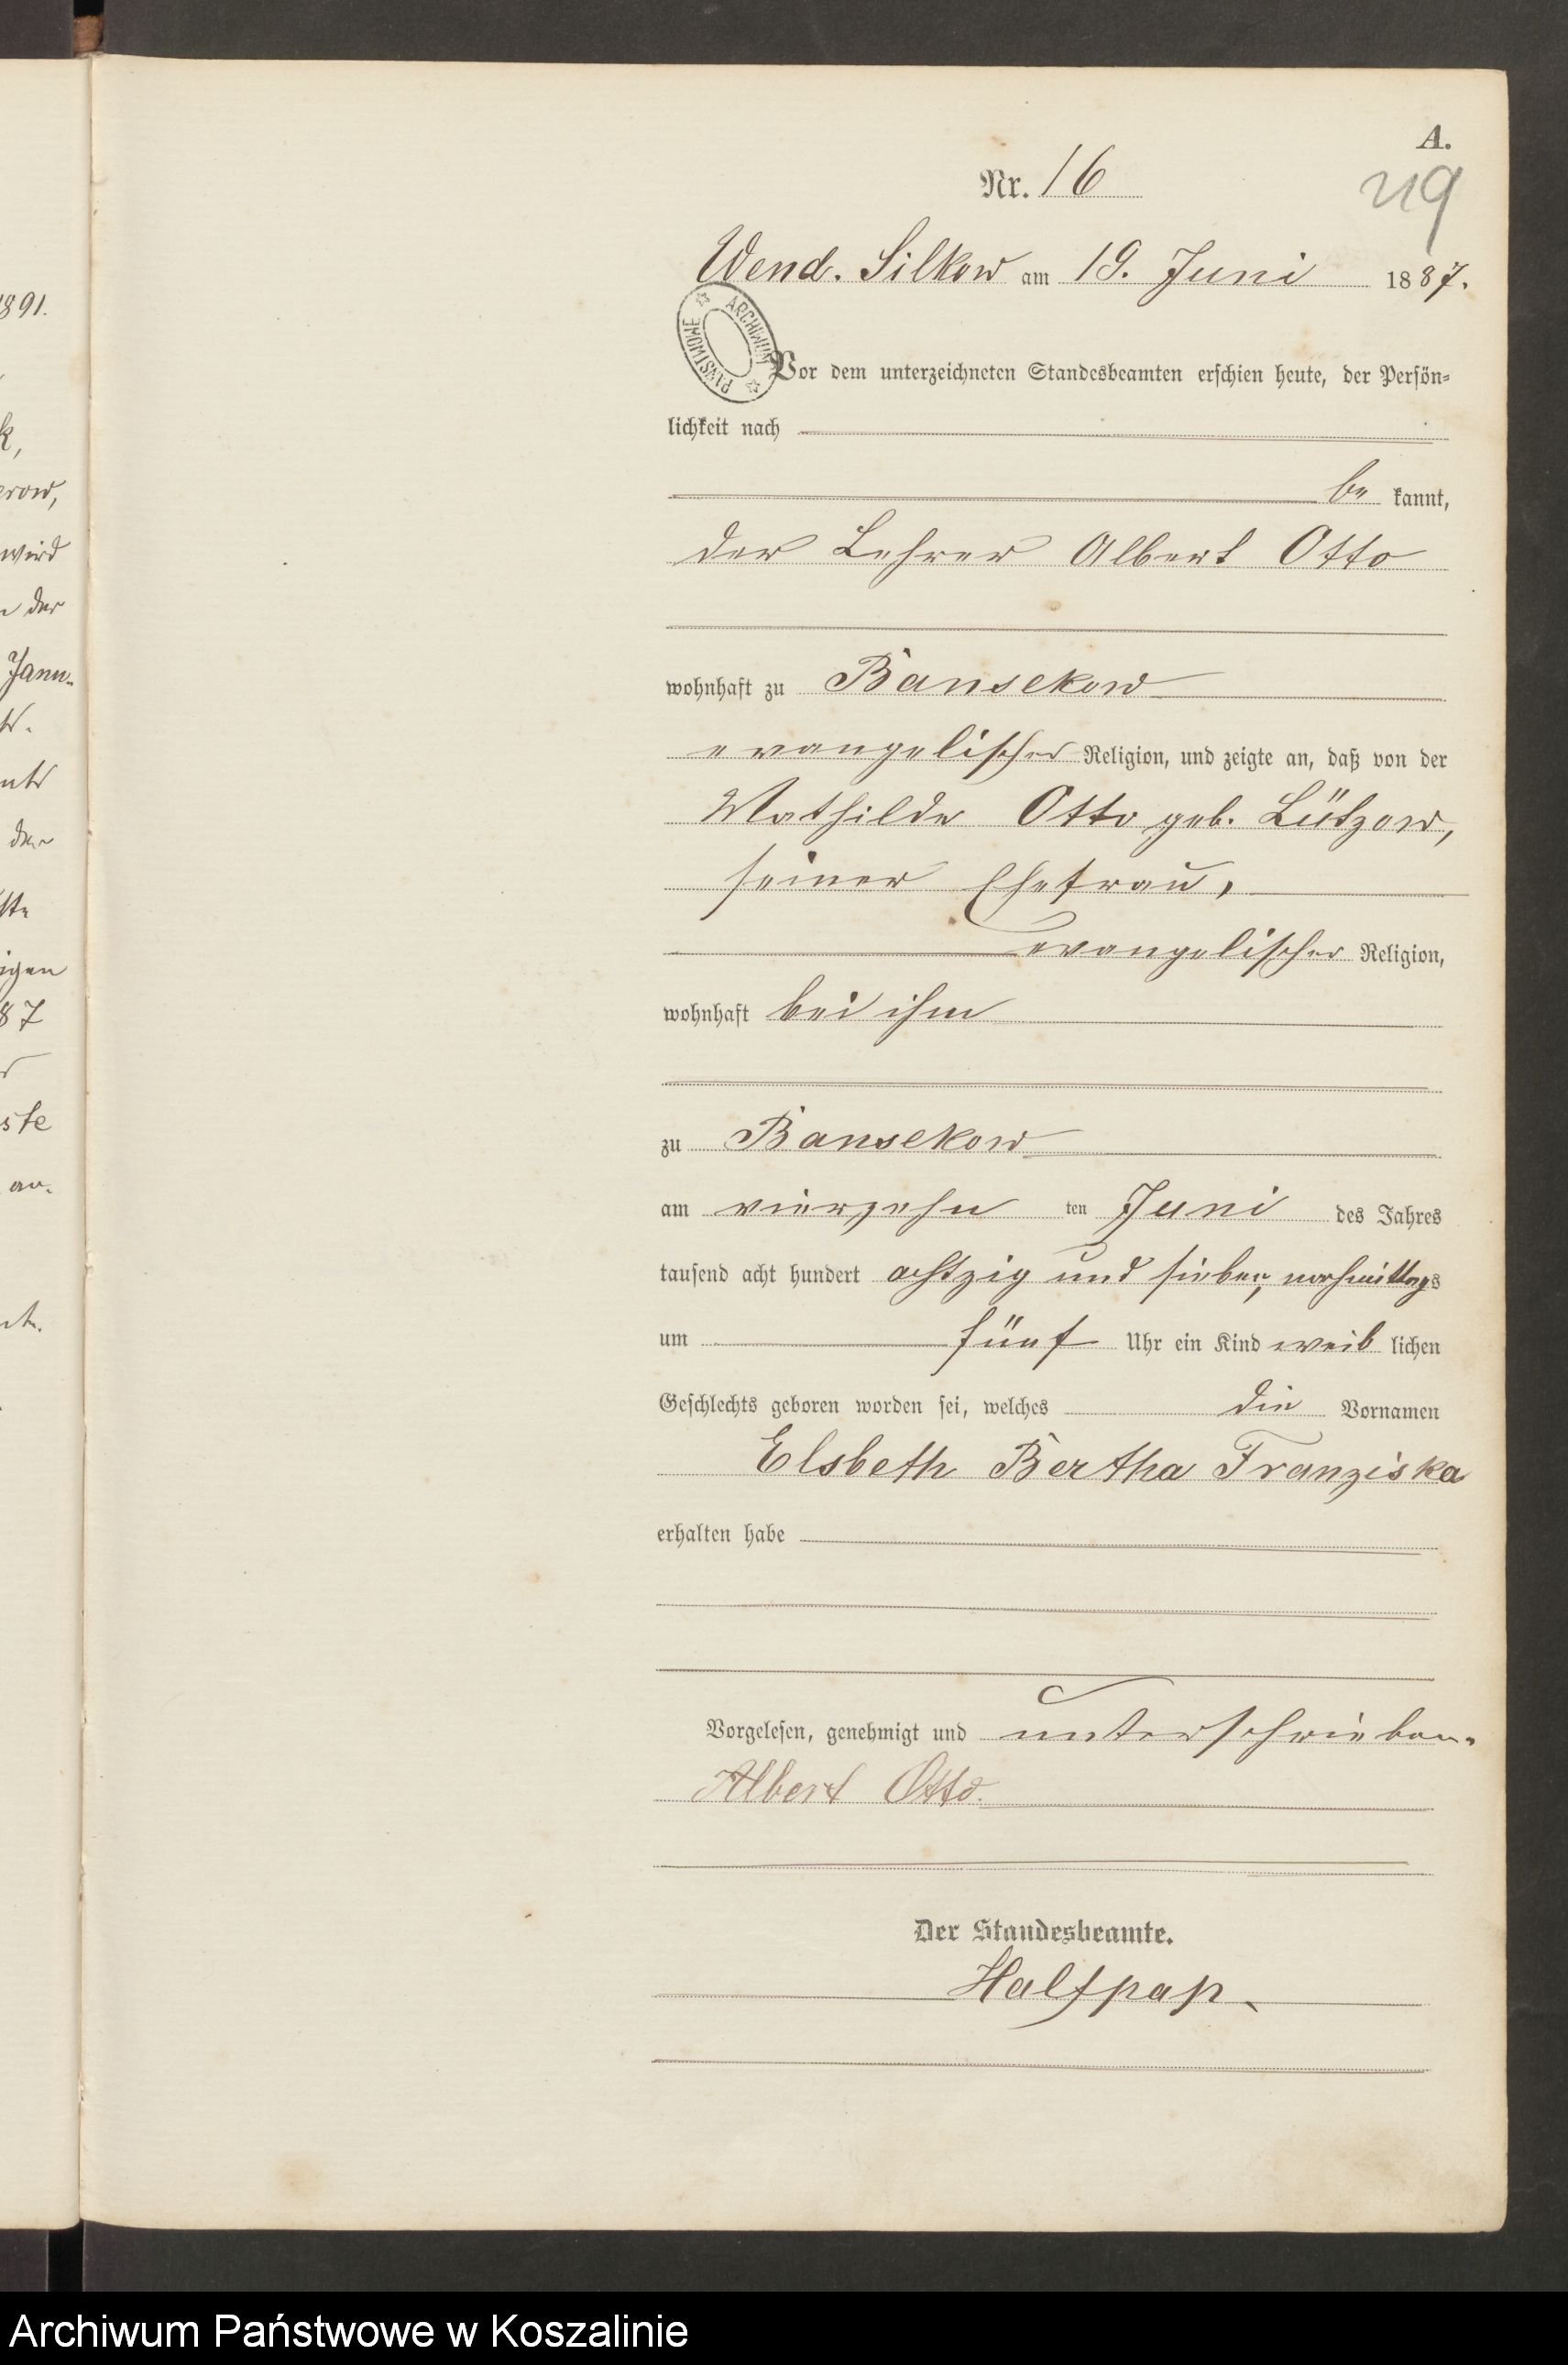 A.
Nr. 16
219
Wend. Silkow am 19. Juni 1887.
ARCHIWUM PAŃSTWOWE
Vor dem unterzeichneten Standesbeamten erschien heute, der Persön-
lichkeit nach
be kannt,
der Lehrer Albert Otto
wohnhaft zu Bansekow
evangelischer Religion, und zeigte an, daß von der
Mathilde Otto geb. Lützow,
seiner Ehefrau,
evangelischer Religion,
wohnhaft bei ihm
zu Bansekow
am vierzehn ten Juni des Jahres
tausend acht hundert achtzig und sieben, nachmittags
um fünf Uhr ein Kind weib lichen
Geschlechts geboren worden sei, welches die Vornamen
Elsbeth Bertha Franziska
erhalten habe
Vorgelesen, genehmigt und unterschrieben.
Albert Otto.
Der Standesbeamte.
Halfpap.
1891.
k,
wird
der
Janu-
der
igen
87
Archiwum Państwowe w Koszalinie